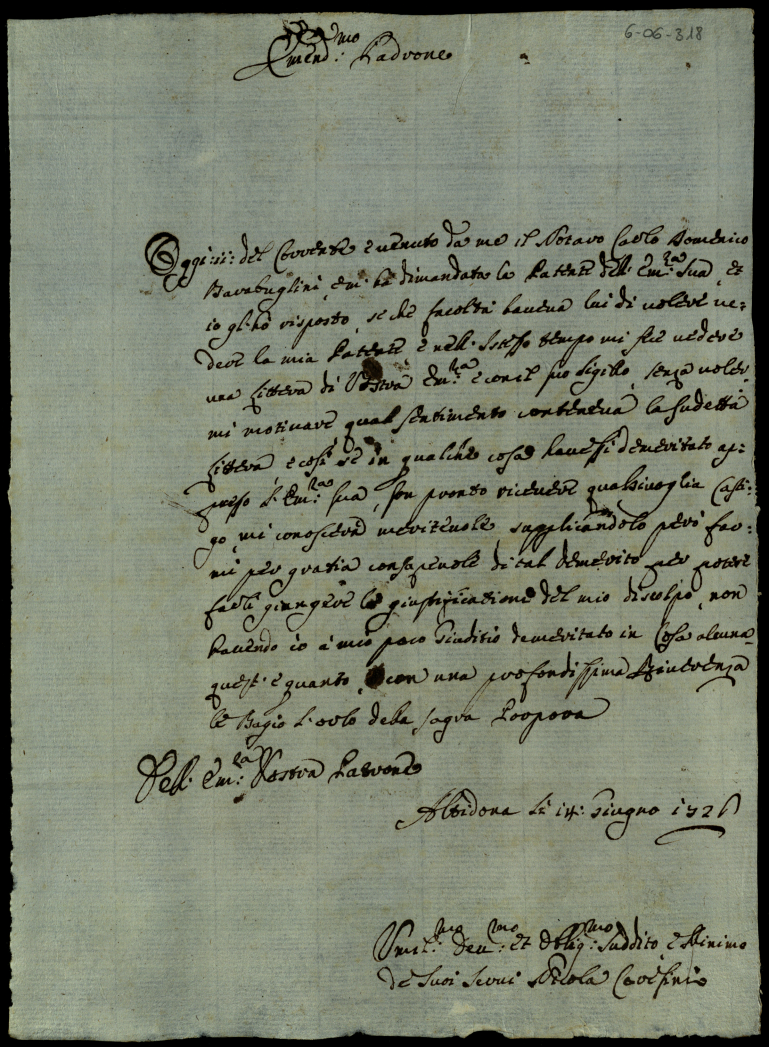 6-06-318
Emend:mo Padrone
Oggi: 11: del Corrente è uenuto da me il Notaro Carlo Domenico
e mi hà dimandata la Patente dell' Em:za Sua, et
io gl'hò risposto, se che facoltà haueua lui di uolere ue:
dere la mia Patente, e nell' istesso tempo mi fece uedere
una littera di Vostra Em:za e con il suo sigillo, senza uoler
mi motiuare qual sentimento conteneua la sudetta
littera, e così se in qualche cosa hauessi demeritato ap:
presso l'Em:za sua, son pronto riceuere qualsiuoglia Casti:
go, mi conoscerà meriteuole supplicandolo però far:
mi per gratia consapeuole di tal demerito per potere
farli giungere le giustificatione del mio discolpo, non
hauendo io à mio poco Giuditio demeritato in Cosa alcuna
quest' è quanto, e con una profondissima Riuerenza
le Bagio l'orlo della sagra Porpora
Dell' Em:za Vostra Padrone
Altidona li 14: Giugno 172
Umil:mo Deu:mo et Oblig:mo suddito, e Minimo
de suoi serui Nicola